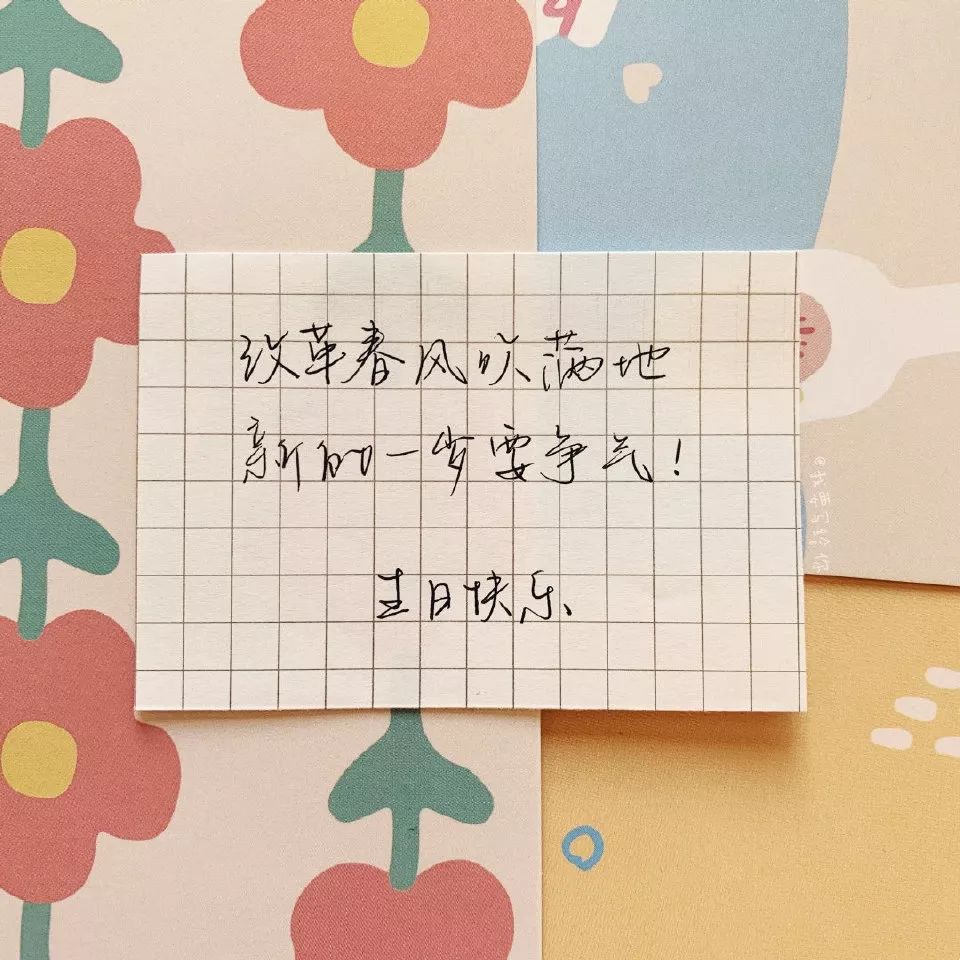 改革春风吹满地
新的一岁要争气!
生日快乐
@我要写给你